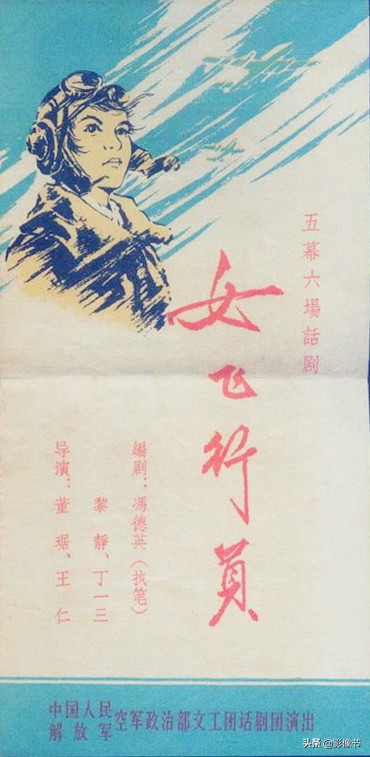 五幕六場話剧
女飞行員
編剧：馮德英（执笔）
黎静、丁一三
导演：董琚、王仁
中国人民
解放军
空军政治部文工团话剧团演出
头条@影像节